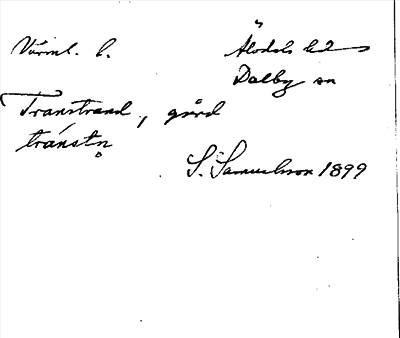 Värml. l.
Älvdals hd
Dalby sn
Transtrand, gård
tránstṇ
S. Samuelsson 1899